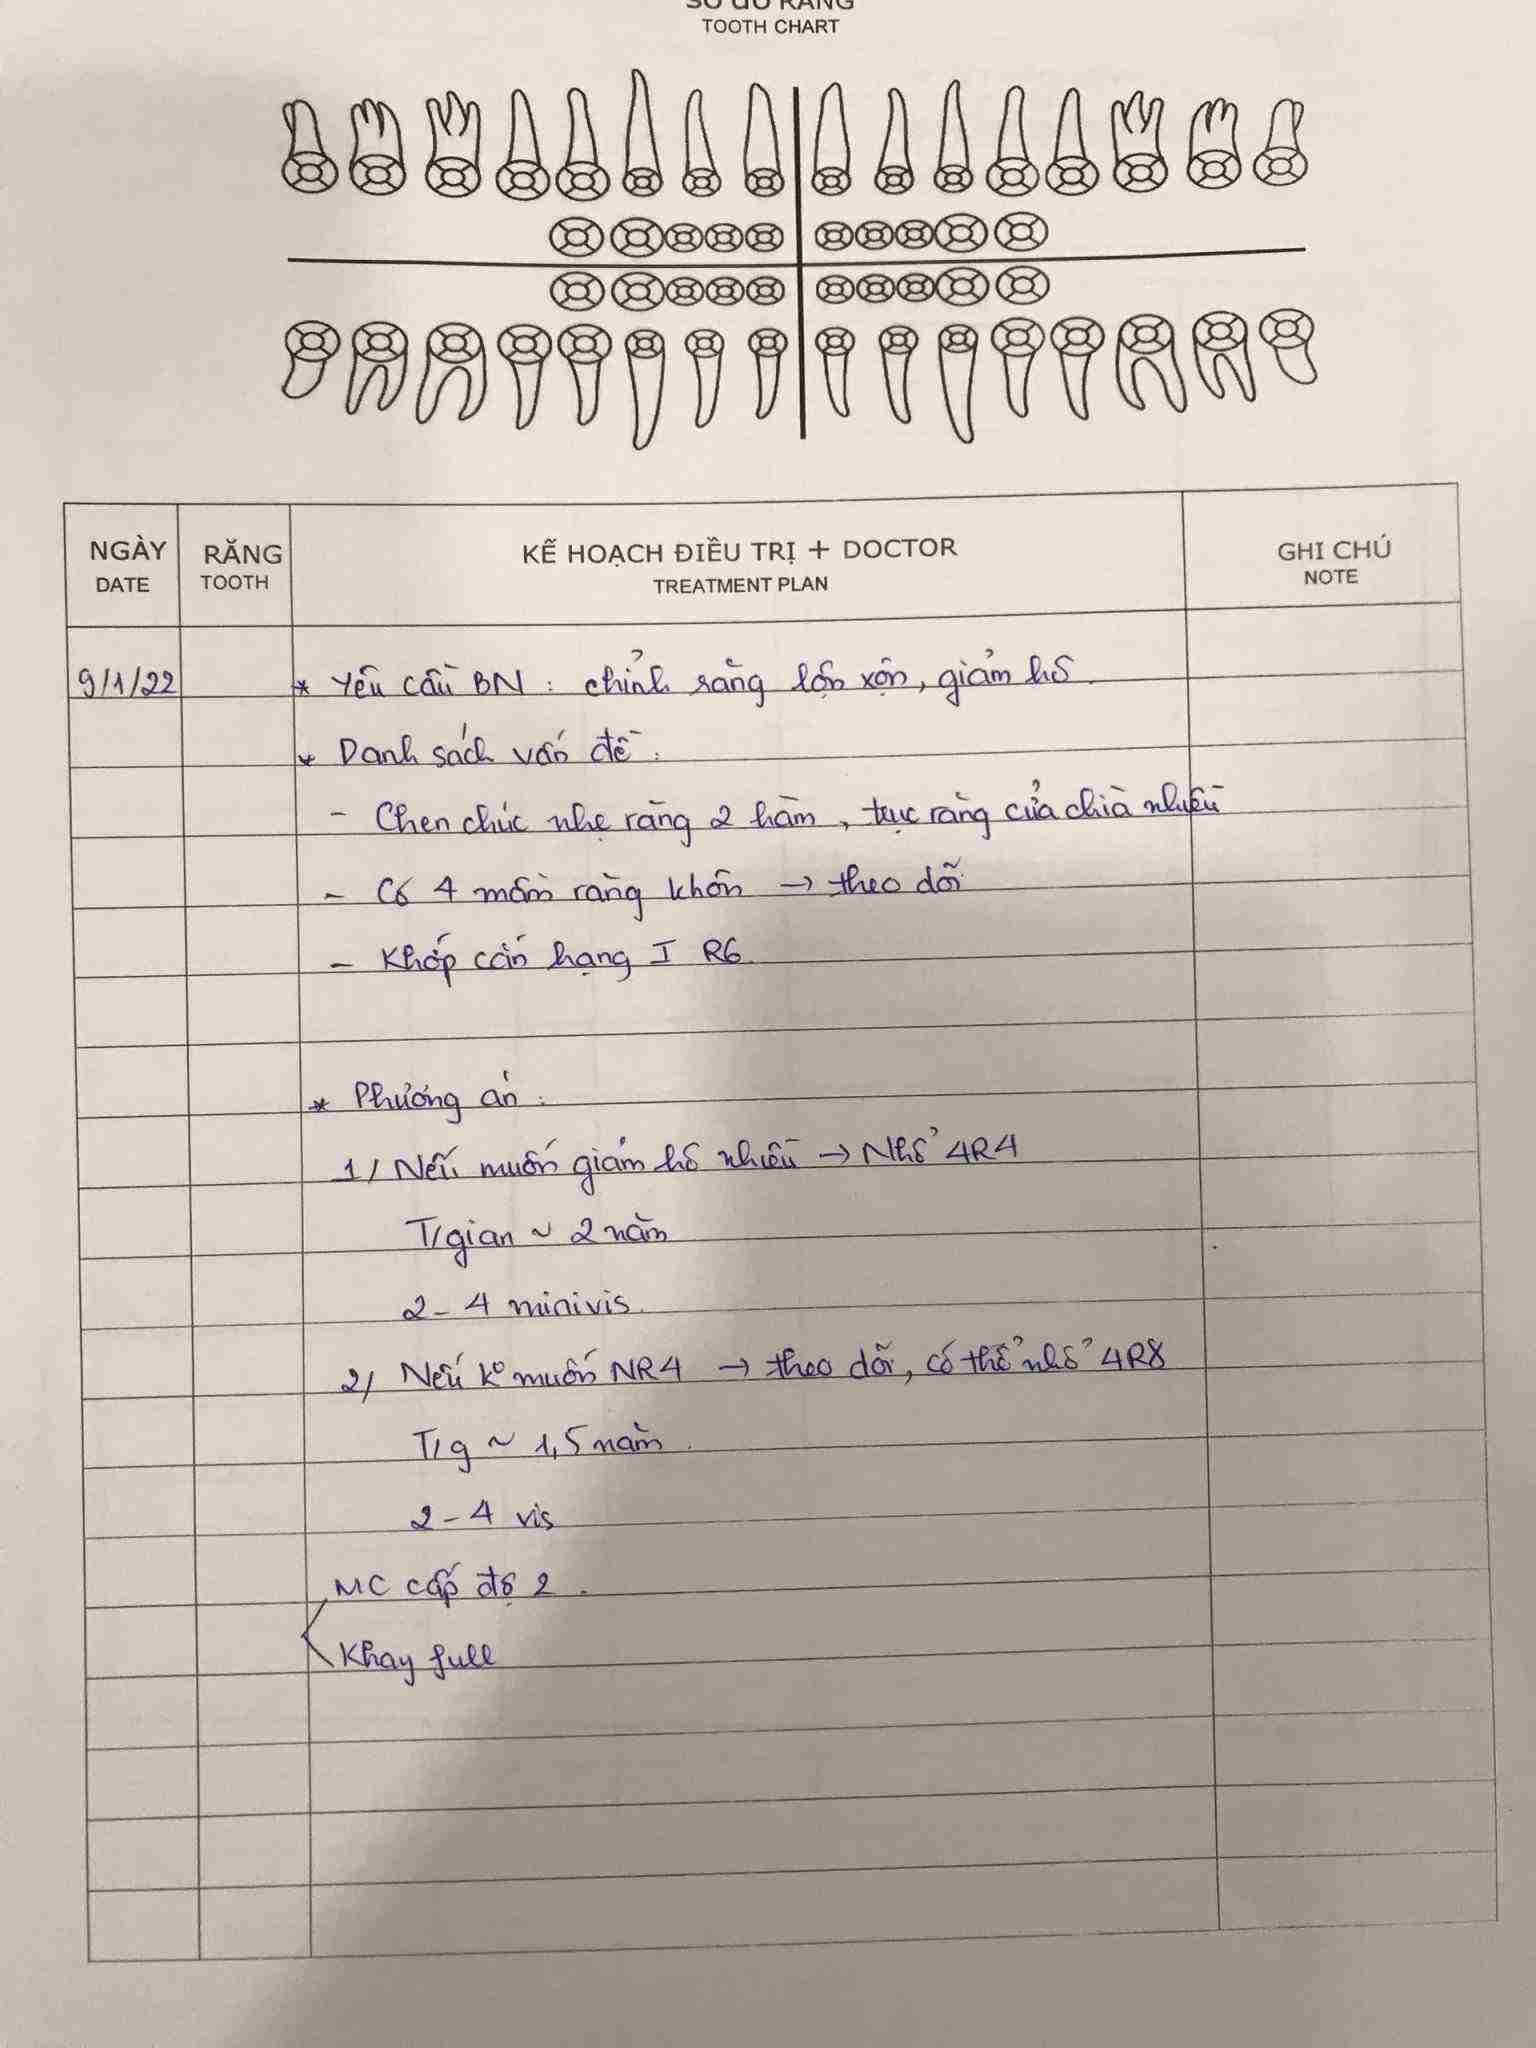 SƠ ĐỒ RĂNG
TOOTH CHART
NGÀY RĂNG KẾ HOẠCH ĐIỀU TRỊ + DOCTOR GHI CHÚ
DATE TOOTH TREATMENT PLAN NOTE
9/1/22 * Yêu cầu BN : chỉnh răng lộn xộn, giảm hô
* Danh sách vấn đề :
- Chen chúc nhẹ răng 2 hàm, trục răng cửa chìa nhiều
- Có 4 mầm răng khôn → theo dõi
- Khớp cắn hạng I R6
* Phương án :
1/ Nếu muốn giảm hô nhiều → Nhổ 4R4
T/gian ~ 2 năm
2 - 4 minivis.
2/ Nếu k° muốn NR4 → theo dõi, có thể nhổ 4R8
T/g ~ 1,5 năm.
2 - 4 vis
MC cấp độ 2.
Khay full